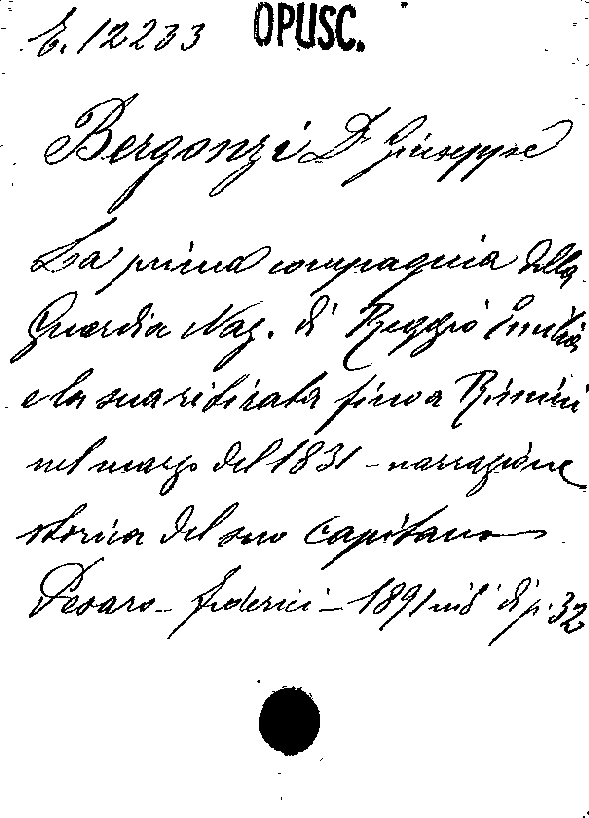 E. 12233 OPUSC.
Bergonzi Dr Giuseppe
La prima compagnia della
Guardia Naz. di Reggio Emilia
e la sua ritirata fino a Rimini
nel marzo del 1831 - narrazione
storica del suo capitano
Pesaro - Federici - 1891 in 8° di p. 32